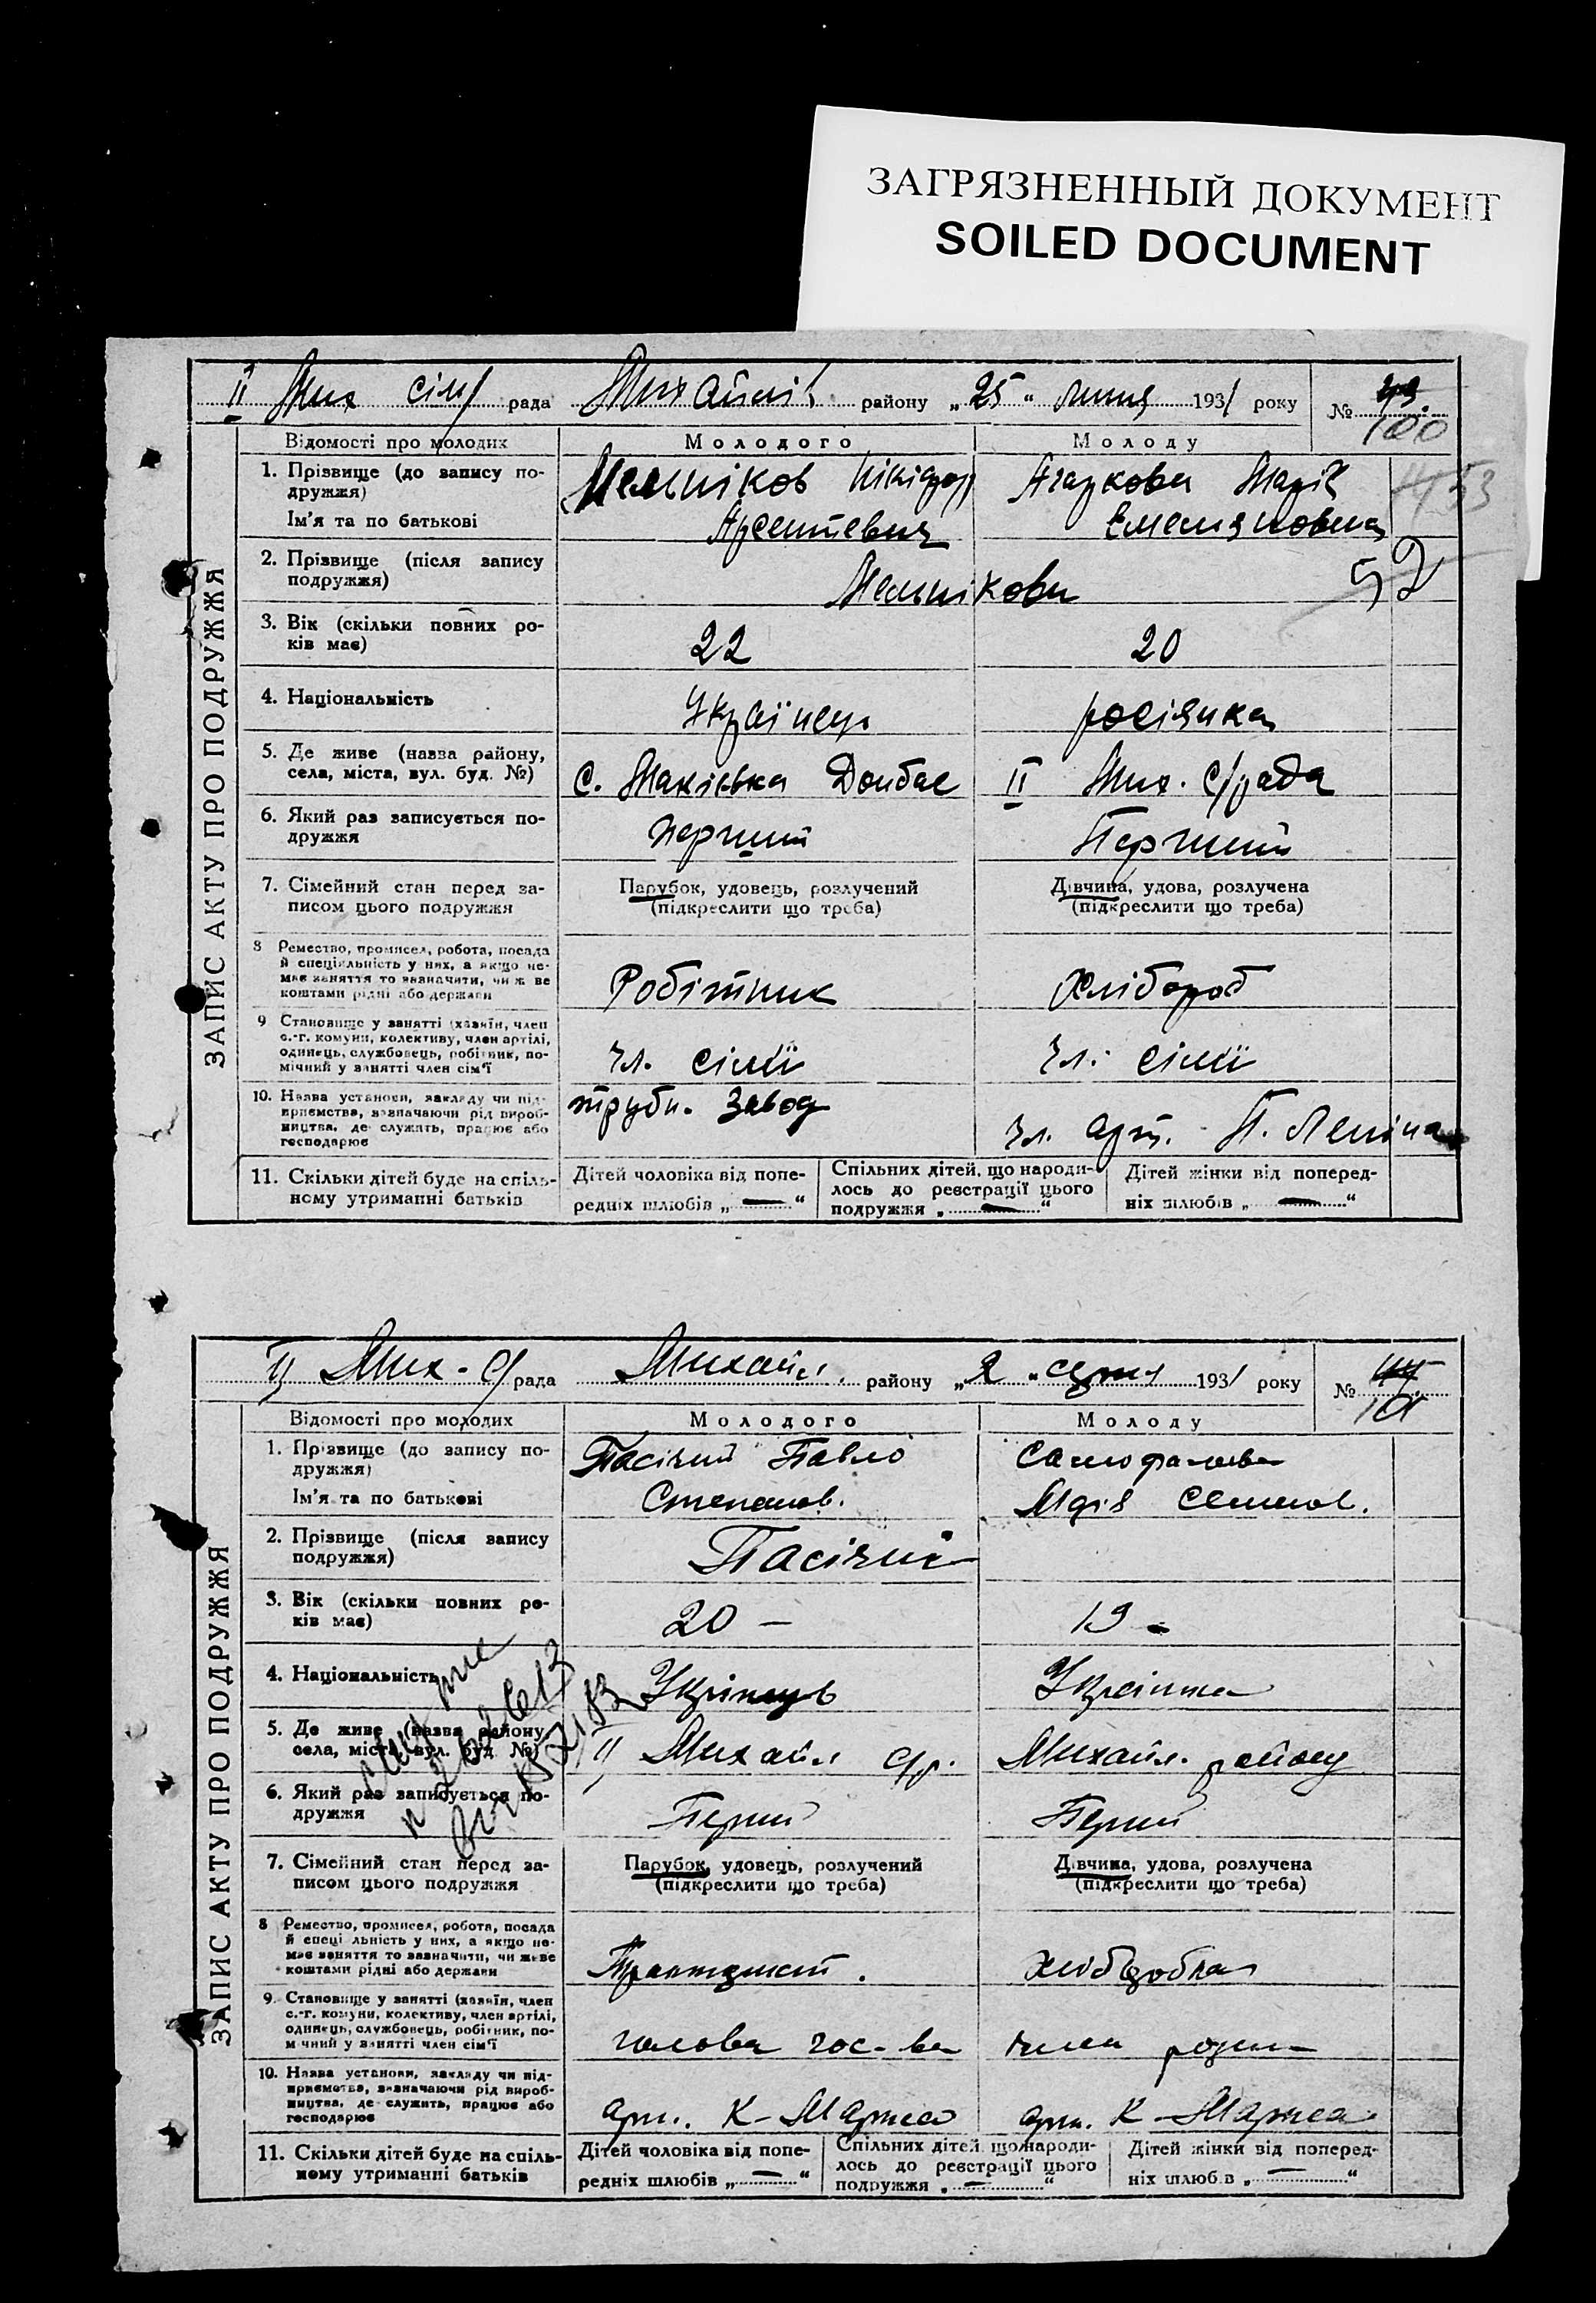 ЗАГРЯЗНЕННЫЙ ДОКУМЕНТ
SOILED DOCUMENT
ЗАПИС АКТУ ПРО ПОДРУЖЖЯ
II Мих сіл/ рада Михайлів району „25“ липня 1931 року № 43 100
Відомості про молодих Молодого Молоду
1. Прізвище (до запису по-
дружжя)
Ім'я та по батькові
Мельніков Нікіфор
Арсентевич
Агаркова Марія
Емельяновна
53
2. Прізвище (після запису
подружжя)
Мельнікови
52
3. Вік (скільки повних ро-
ків має)
22 20
4. Національність
Українець росіянка
5. Де живе (назва району,
села, міста, вул. буд. №)
С. Макіївка Донбас II Мих. с/рада
6. Який раз записується по-
дружжя
Перший Перший
7. Сімейний стан перед за-
писом цього подружжя
Парубок, удовець, розлучений
(підкреслити що треба)
Дівчина, удова, розлучена
(підкреслити що треба)
8 Ремество, промисел, робота, посада
й спеціяльність у них, а якщо не-
має заняття то зазначити, чи ж ве
коштами рідні або держави
Робітник Хлібороб
9 Становище у занятті (хазяїн, член
с.-г. комуни, колективу, член артілі,
одинець, службовець, робітник, по-
мічний у занятті член сім'ї
чл. сімї чл. сімї
10. Назва установи, закладу чи під-
приємства, зазначаючи рід вироб-
ництва, де служить, працює або
господарює
трубн. завод
чл. арт. П. Леніна
11. Скільки дітей буде на спіль-
ному утриманні батьків
Дітей чоловіка від попе-
редніх шлюбів „—“
Спільних дітей, що народи-
лось до реєстрації цього
подружжя „—“
Дітей жінки від поперед-
ніх шлюбів „—“
ЗАПИС АКТУ ПРО ПОДРУЖЖЯ
II Мих - с/ рада Михайл. району „2“ серпня 1931 року № 44 101
Відомості про молодих Молодого Молоду
1. Прізвище (до запису по-
дружжя)
Ім'я та по батькові
Пасічний Павло
Степанов.
Самофалова
Марія Семенов.
2. Прізвище (після запису
подружжя)
Пасічні
3. Вік (скільки повних ро-
ків має)
20 — 19 -
4. Національність
Українець Українка
5. Де живе (назва району,
села, міста, вул. буд №)
II Михайл с/р. Михайл. району
6. Який раз записується по-
дружжя
Перший Перший
7. Сімейний стан перед за-
писом цього подружжя
Парубок, удовець, розлучений
(підкреслити що треба)
Дівчина, удова, розлучена
(підкреслити що треба)
8 Ремество, промисел, робота, посада
й спеці льність у них, а якщо не-
має заняття то зазначити, чи живе
коштами рідні або держави
Трактурист. хліборобка
9. Становище у занятті (хазяїн, член
с.-г. комуни, колективу, член артілі,
одинець, службовець, робітник, по-
м чний у занятті член сім'ї
голова гос-ва член родини
10. Назва установи, закладу чи під-
приємства, зазначаючи рід вироб-
ництва, де служить, працює або
господарює
арт. К-Маркса арт. К-Маркса
11. Скільки дітей буде на спіль-
ному утриманні батьків
Дітей чоловіка від попе-
редніх шлюбів „—“
Спільних дітей, що народи-
лось до реєстрації цього
подружжя „—“
Дітей жінки від поперед-
ніх шлюб в „—“